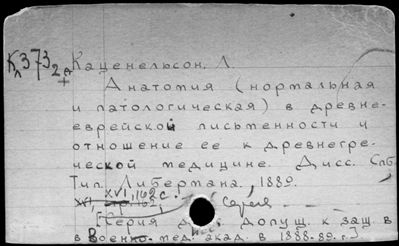 Кл 373 2
Каценельсон, Л.
Анатомия (нормальная
и патологическая) в древне-
еврейской письменности и
отношение ее к древнегре-
ческой медицине. Дисс. Спб.
Тип. Либермана, 1889.
XVI, 162 с.
[Серия дисс. допущ. к защ. в
Военно-мед. акад. в 1888-89 г.]